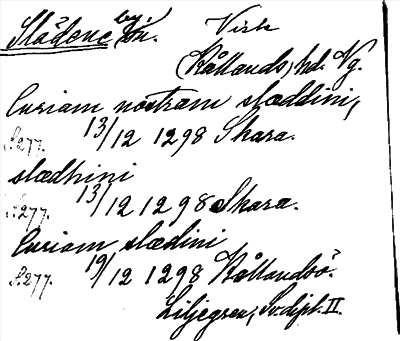 Slädene by. Visk
(Kållands) hd. Vg.
Curiam nostram slæddini,
S. 277. 13/12 1298 Skara.
slædhini
S. 277. 13/12 1298 Skara.
Curiam slædini
S. 277. 19/12 1298 Kållandsö.
Liljegren, Sv. dipl. II.